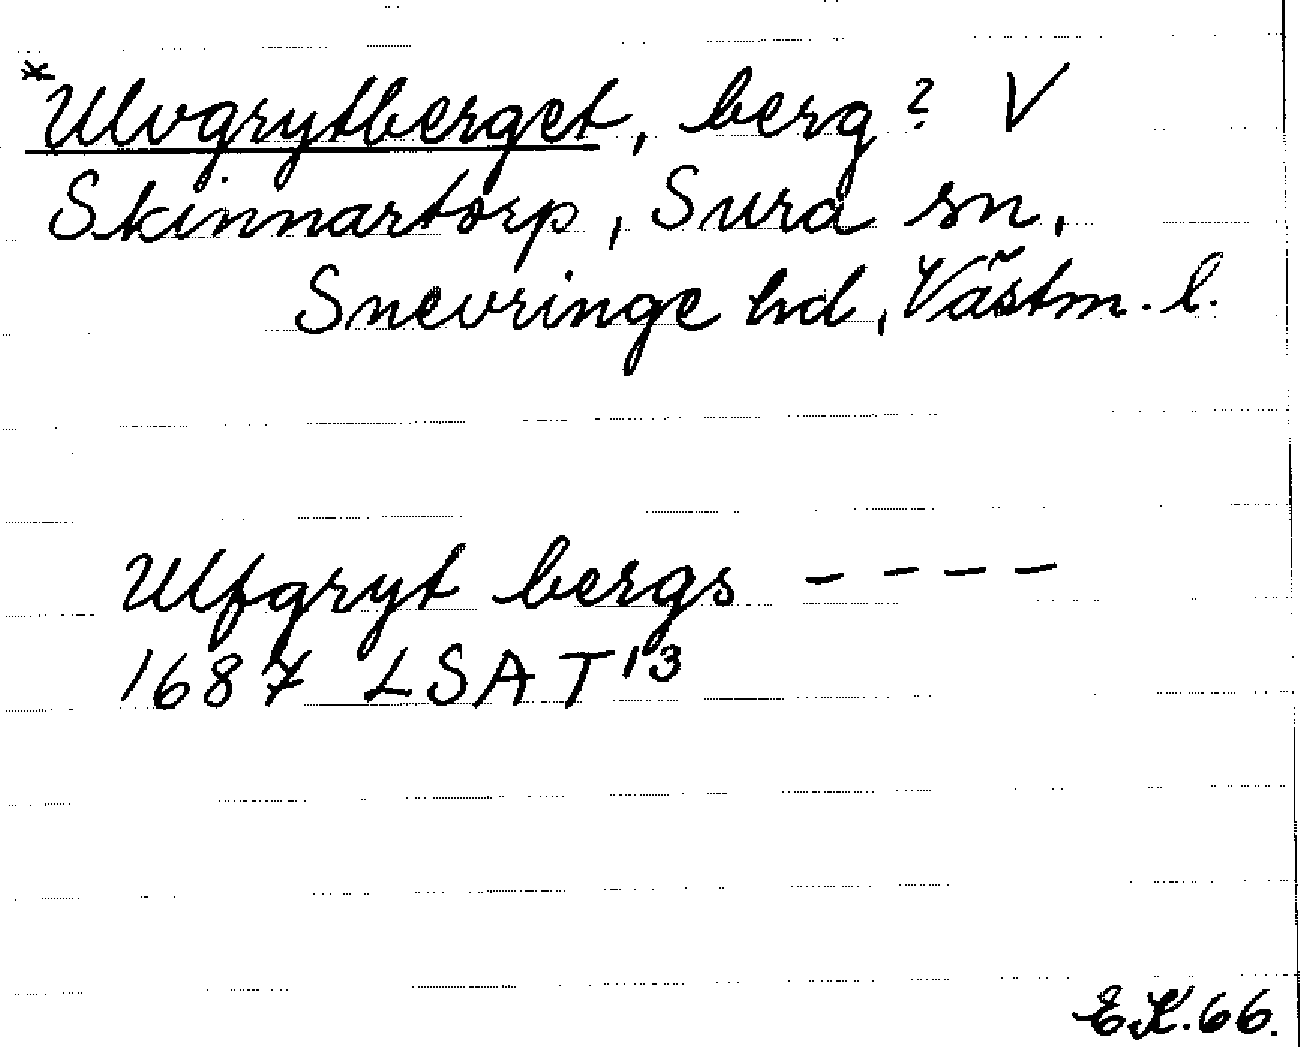 *Ulvgrytberget, berg? V
Skinnartorp, Sura sn,
Snevringe hd, Västm. l.
Ulfgryt bergs - - - -
1687 LSA T¹³
EK. 66.